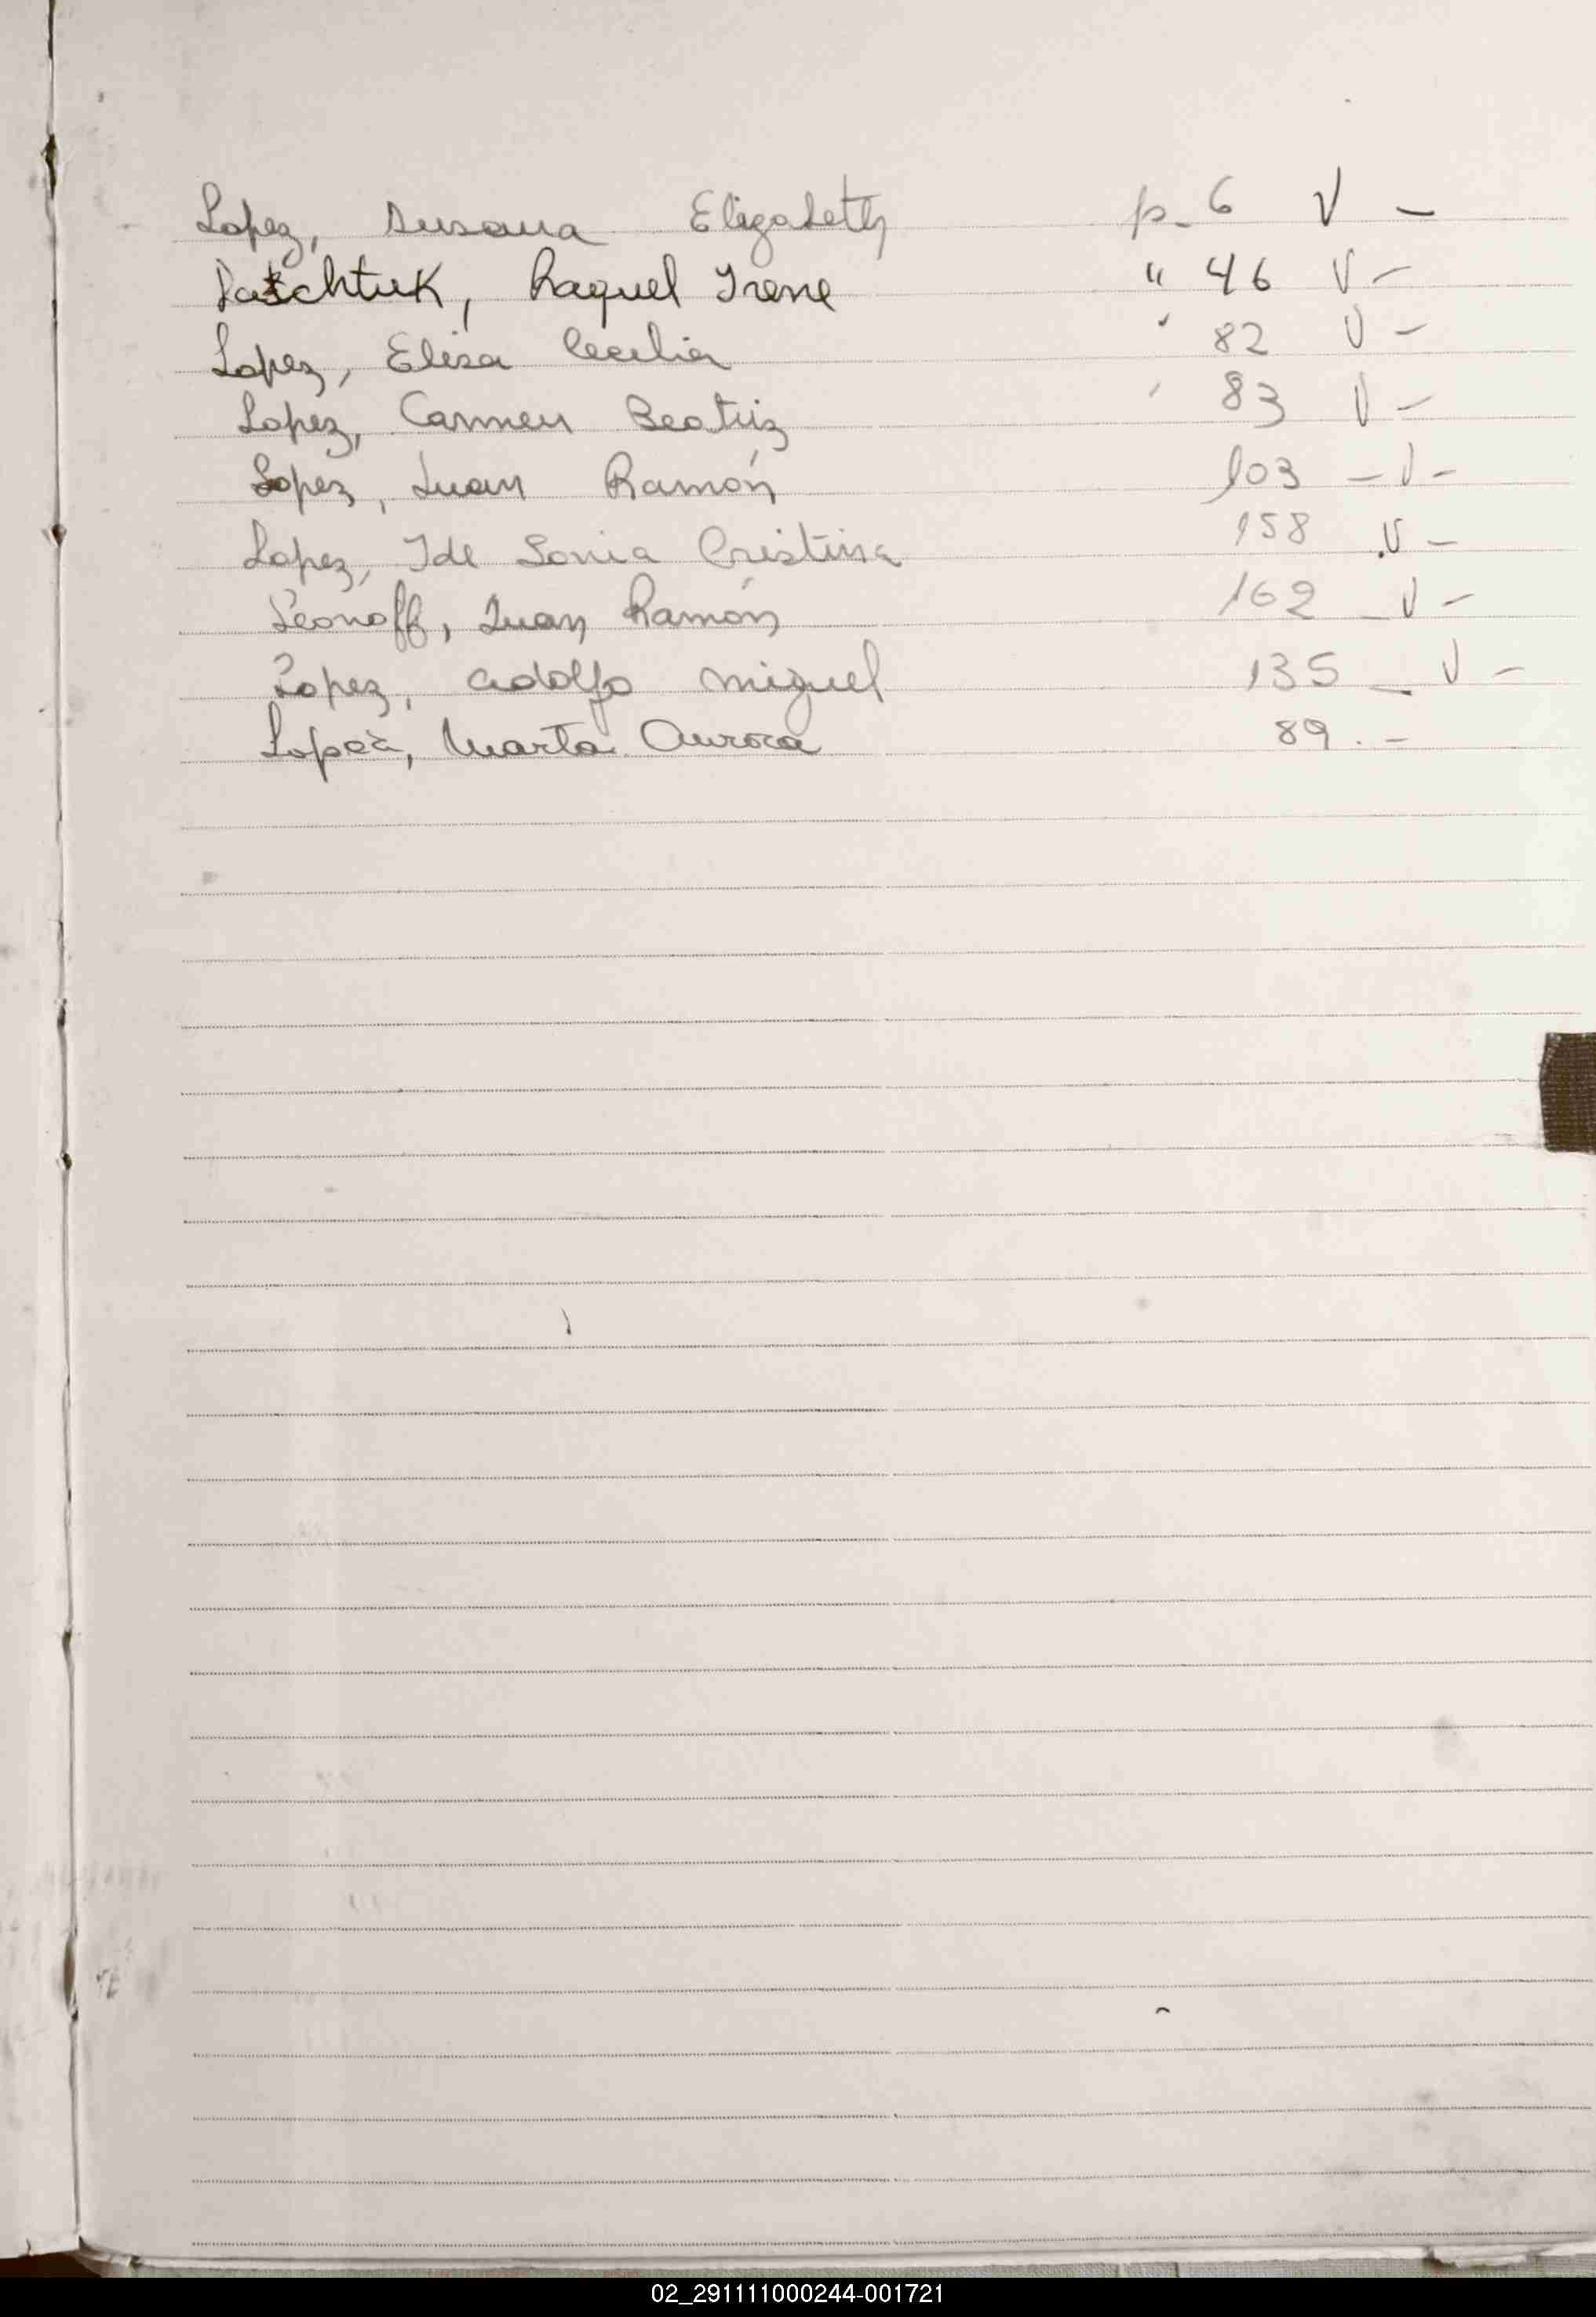 Lopez, Susana Elizabeth p. 6 V -
Latschtuk, Raquel Irene " 46 V -
Lopez, Elisa Cecilia " 82 V -
Lopez, Carmen Beatriz " 83 V -
Lopez, Juan Ramón 103 - V -
Lopez, Ide Sonia Cristina 158 V -
Leonoff, Juan Ramón 162 - V -
Lopez, Adolfo Miguel 135 - V -
Lopez, Marta Aurora 89 . -
02_291111000244-001721